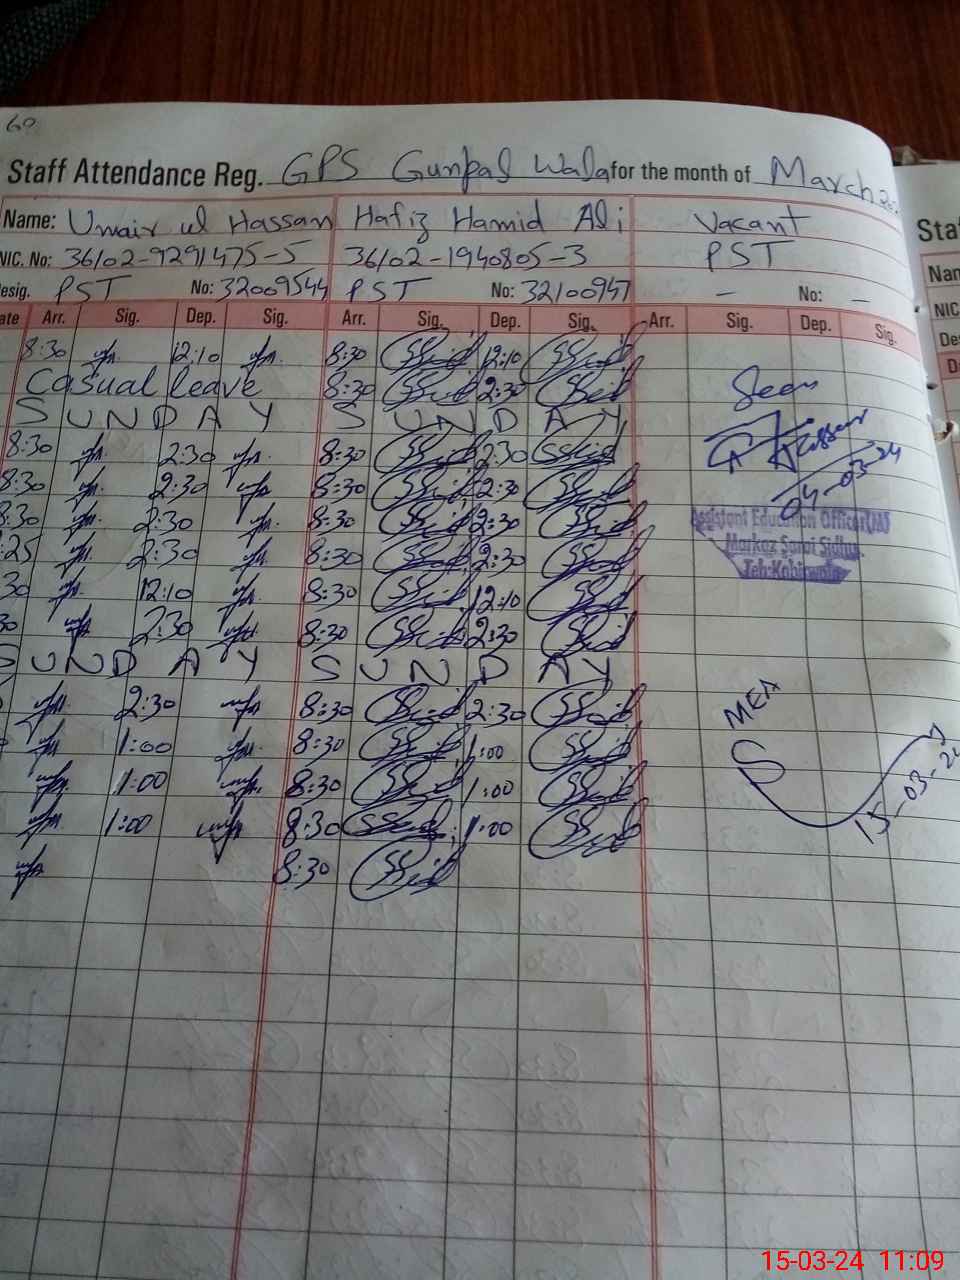 60
Staff Attendance Reg. GPS Gunpal Wala for the month of March
Name: Umair ul Hassan Hafiz Hamid Ali Vacant
NIC. No: 36102-9291475-5 36102-1940805-3 PST
Desig. PST No: 32009544 PST No: 32100947 - No: -
ate Arr. Sig. Dep. Sig. Arr. Sig. Dep. Sig. Arr. Sig. Dep. Sig.
8:30 12:10 8:30 12:10
Casual leave 8:30 2:30
SUNDAY SUNDAY
8:30 2:30 8:30 2:30
8:30 2:30 8:30 2:30
8:30 2:30 8:30 2:30
:25 2:30 8:30 2:30
30 12:10 8:30 12:10
30 2:30 8:30 2:30
SUNDAY SUNDAY
2:30 8:30 2:30
1:00 8:30 1:00
1:00 8:30 1:00
1:00 8:30 1:00
8:30
Seen
04-03-24
Assistant Education Officer (M)
Markaz Sarai Sidhu
Teh: Kabirwala
MEA
15-03-24
Sta
Nam
NIC
Des
D
15-03-24 11:09